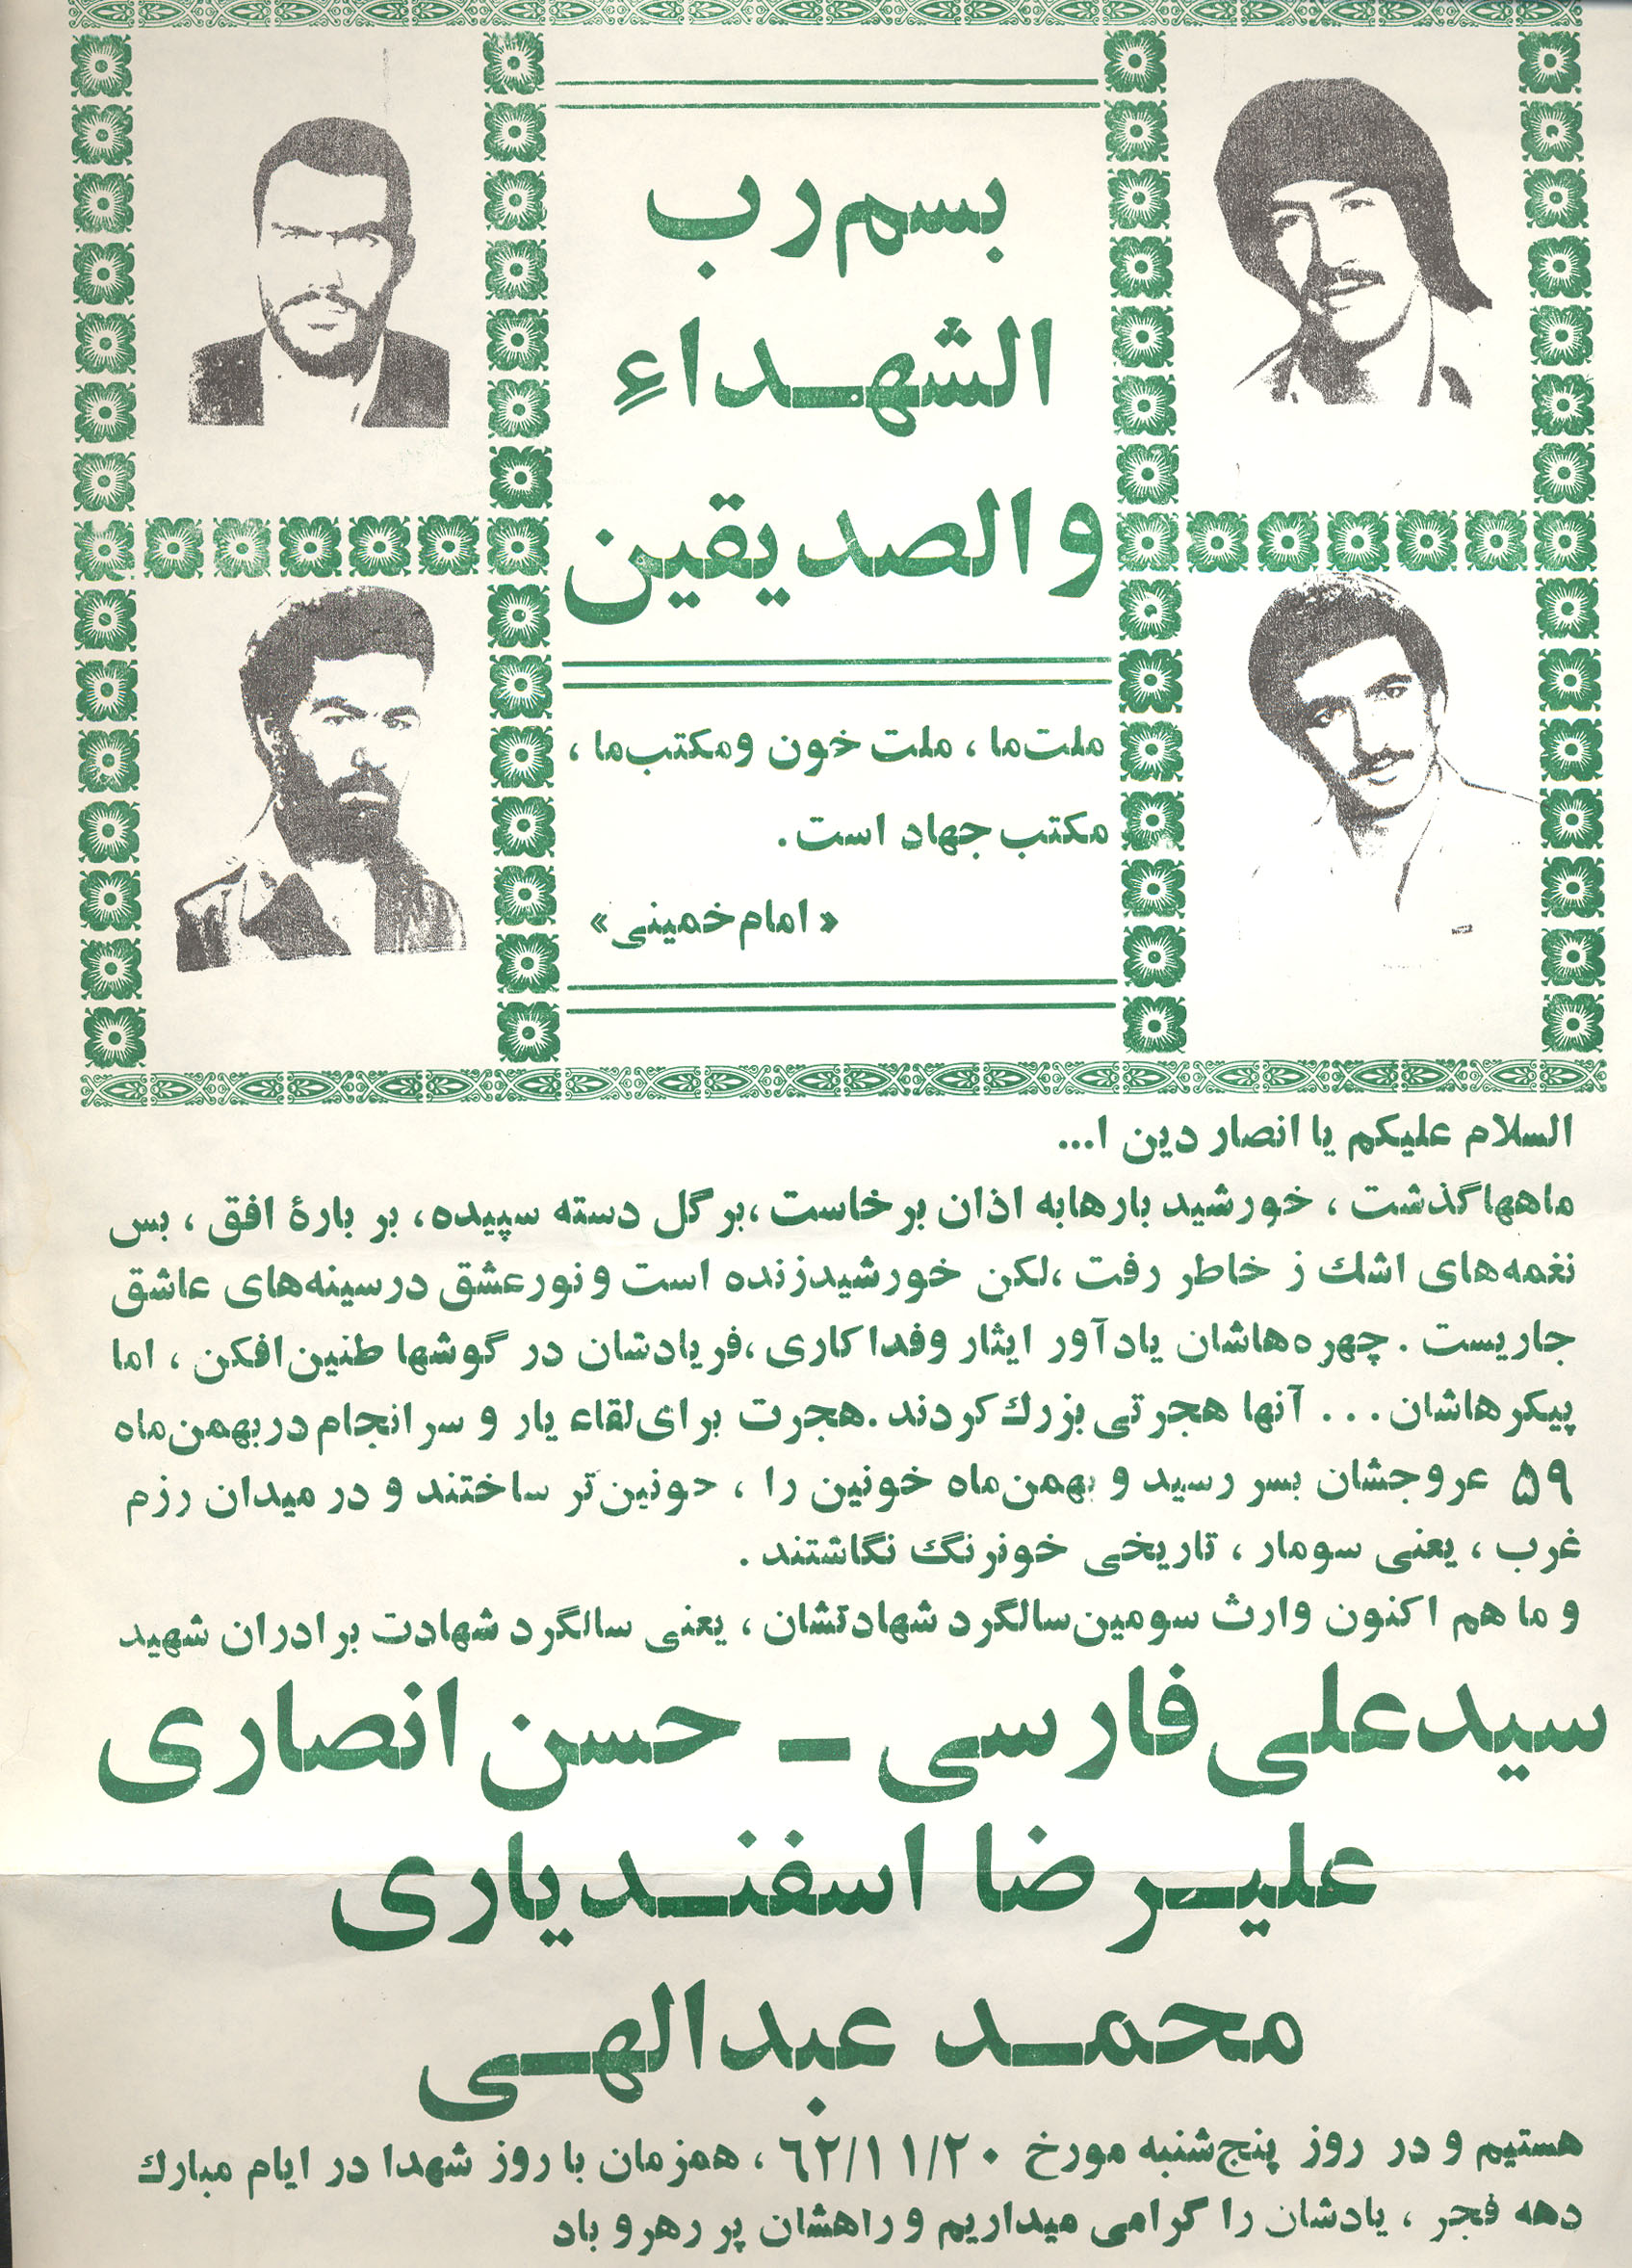 بسم رب
الشهداءِ
والصدیقین
ملت‌ما ، ملت خون ومکتب‌ما ،
مکتب جهاد است .
« امام‌خمینی »
السلام علیکم یا انصار دین ا...
ماههاگذشت ، خورشید بارهابه اذان برخاست ،برگل دسته سپیده، بر بارهٔ افق ، بس
نغمه‌های اشك ز خاطر رفت ،لکن خورشیدزنده است و نورعشق درسینه‌های عاشق
جاریست . چهره‌هاشان یادآور ایثار وفداکاری ،فریادشان در گوشها طنین‌افکن ، اما
پیکرهاشان . . . آنها هجرتی بزرك کردند .هجرت برای‌لقاء یار و سرانجام دربهمن‌ماه
۵۹ عروجشان بسر رسید و بهمن‌ماه خونین را ، خونین‌تر ساختند و در میدان رزم
غرب ، یعنی سومار ، تاریخی خونرنگ نگاشتند .
و ما هم اکنون وارث سومین‌سالگرد شهادتشان ، یعنی سالگرد شهادت برادران شهید
سیدعلی فارسی - حسن انصاری
علیرضا اسفندیاری
محمد عبدالهی
هستیم و در روز پنج‌شنبه مورخ ۶۲/۱۱/۲۰ ، همزمان با روز شهدا در ایام مبارك
دهه فجر ، یادشان را گرامی میداریم و راهشان پر رهرو باد